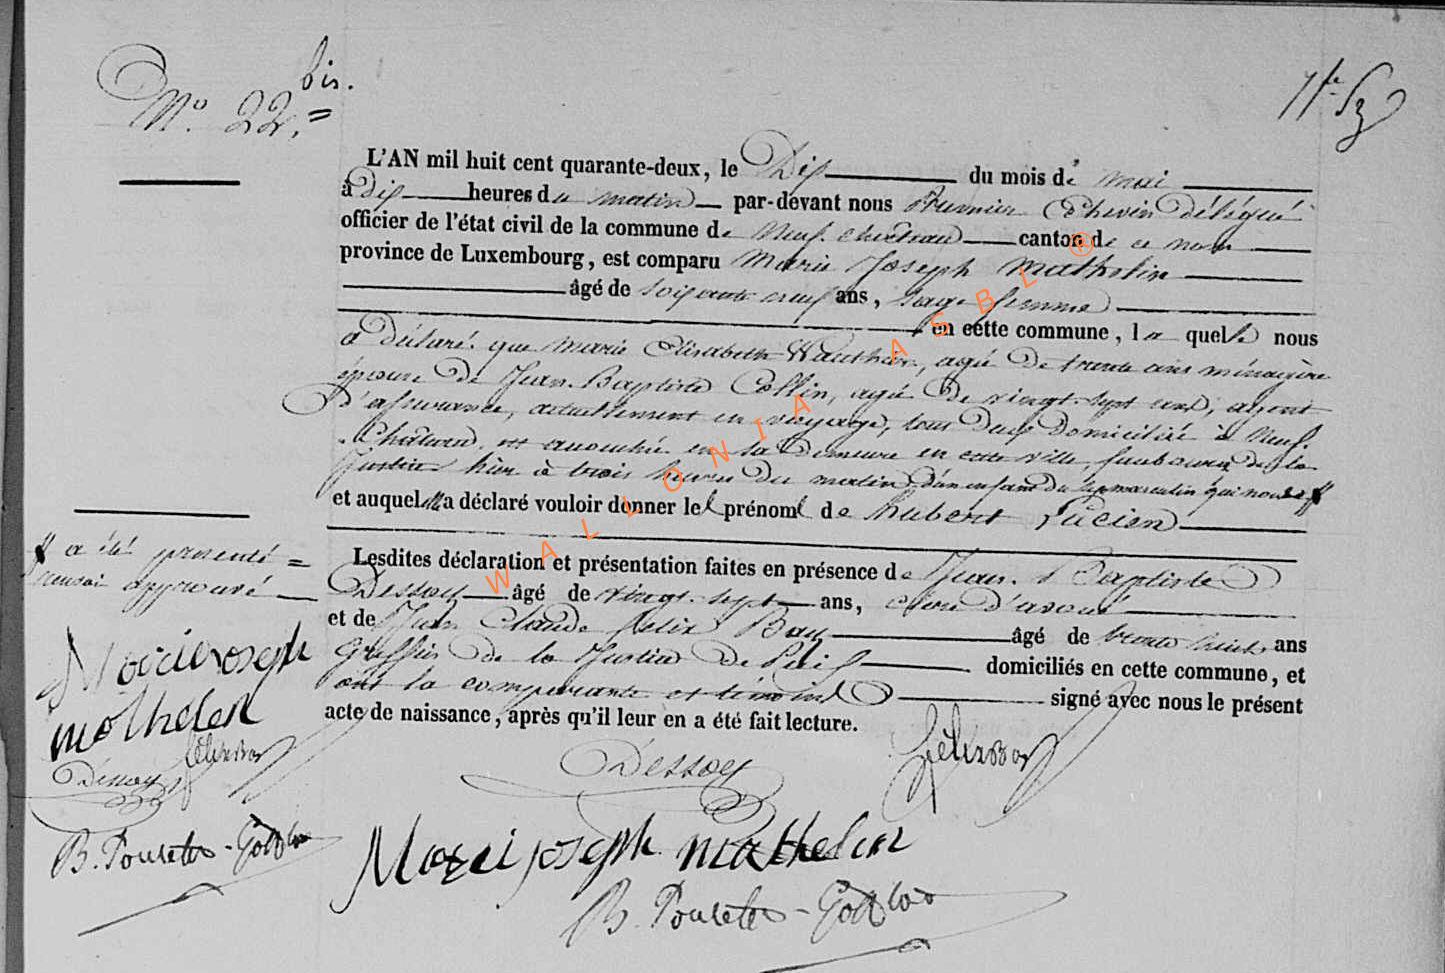 bis.
N° 22.
L'AN mil huit cent quarante-deux, le Dix du mois de mai
à dix heures du matin par-devant nous Premier Echevin délégué
officier de l'état civil de la commune de Neufchateau canton de ce nom
province de Luxembourg, est comparu Marie Joseph Mathelin
âgé de soixante neuf ans, sage femme
en cette commune, laquelle nous
a déclaré que Marie Elisabeth Wauthier, agée de trente ans ménagère
épouse de Jean-Baptiste Collin, agé de vingt-sept ans, agent
d'assurance, actuellement en voyage, tous deux domiciliés à Neuf-
Château, est accouchée en sa demeure en cette ville, faubourg de la
Justice hier à trois heures du matin d'un enfant du sexe masculin qui nous
et auquel elle a déclaré vouloir donner les prénoms de hubert Lucien
Lesdites déclaration et présentation faites en présence de Jean-Baptiste
Dessoy âgé de vingt-sept ans, clerc d'avoué
et de Jean Claude Felix Bay âgé de trente huit ans
Greffier de la Justice de Paix domiciliés en cette commune, et
ont la comparante et témoins signé avec nous le présent
acte de naissance, après qu'il leur en a été fait lecture.
a été presenté =
renvoi approuvé
Marie joseph
mathelin
Dessoy
Félix Bay
Dessoy
Félix Bay
Marie joseph mathelin
WALLONIA ASBL ®